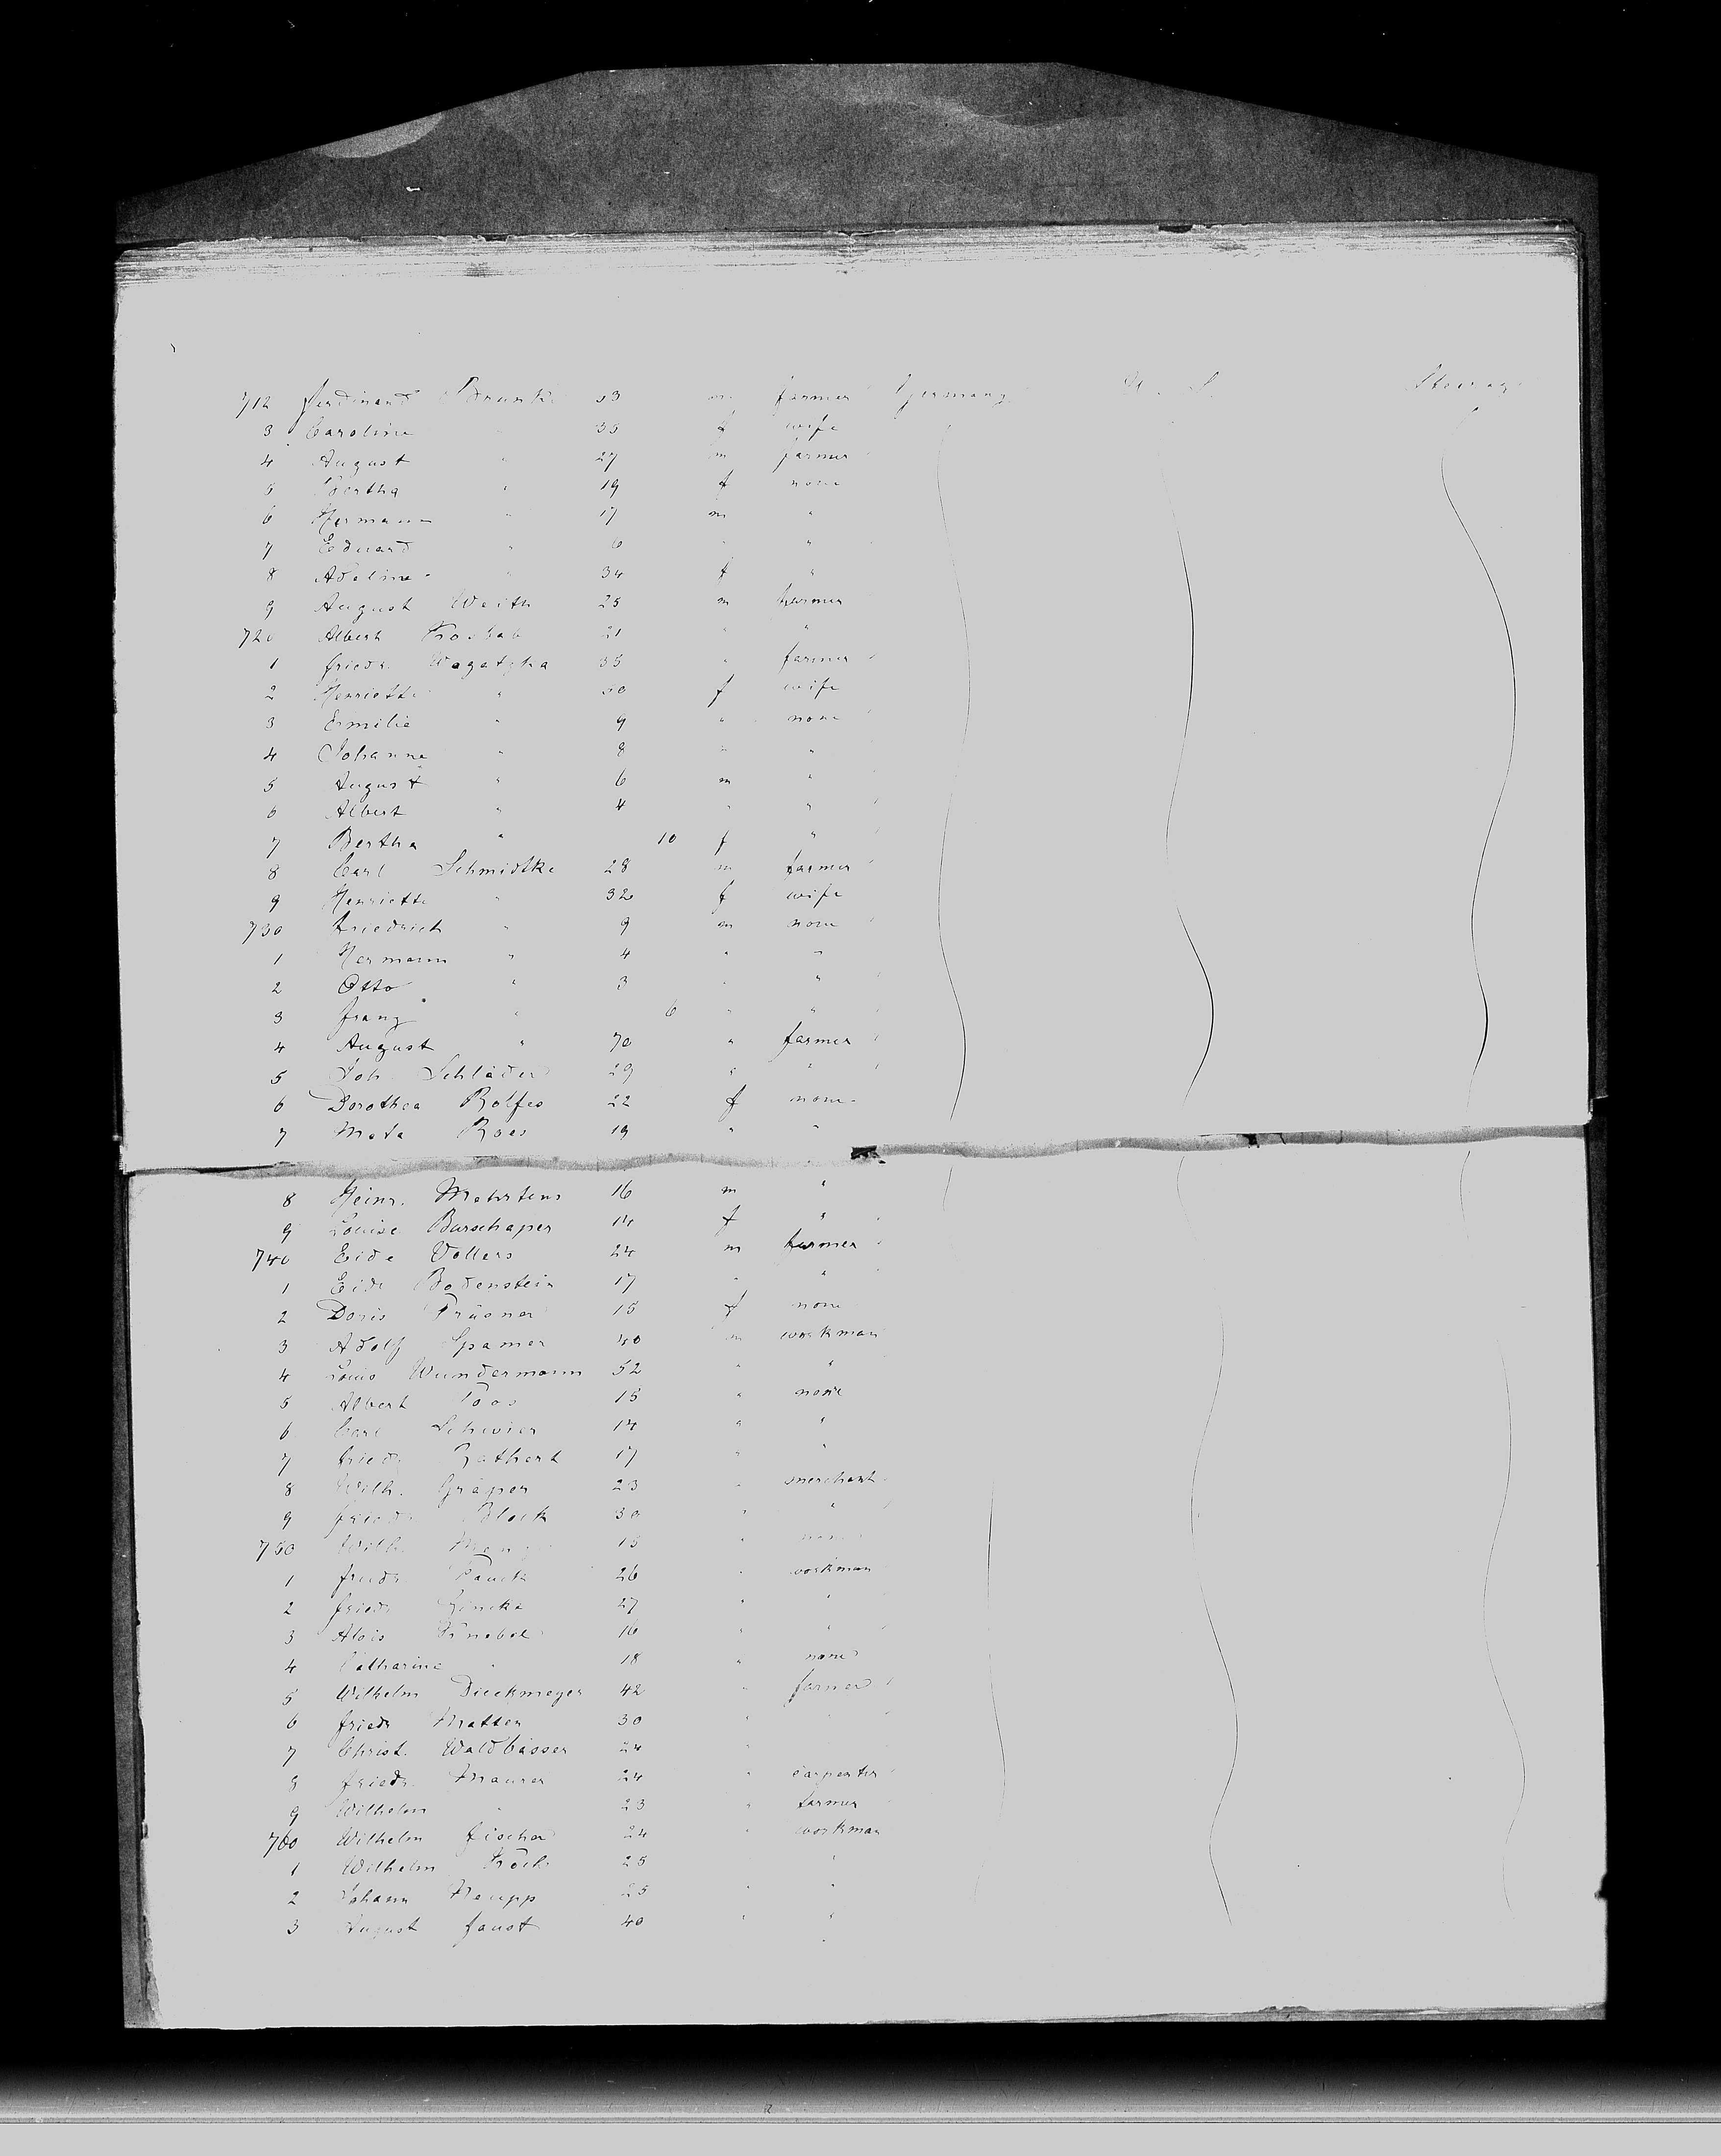 712 Ferdinand 53 m farmer Germany U. S. Steerage
3 Caroline " 35 f wife
4 August " 27 m farmer
5 Bertha " 19 f none
6 Hermann " 17 m "
7 Eduard " 6 " "
8 Adeline " 34 f "
9 August Weith 25 m farmer
720 Albert 21 " "
1 Friedr. Wagatzka 35 " farmer
2 Henriette " 30 f wife
3 Emilie " 9 " none
4 Johanne " 8 " "
5 August " 6 m "
6 Albert " 4 " "
7 Bertha " 10 f "
8 Carl Schmidtke 28 m farmer
9 Henriette " 32 f wife
730 Friedrich " 9 m none
1 Hermann " 4 " "
2 Otto " 3 " "
3 Franz " 6 " "
4 August " 70 " farmer
5 Joh. Schläder 29 " "
6 Dorothea Rolfes 22 f none
7 Meta Roes 19 " "
8 Heinr. Mehrtens 16 m "
9 Louise Burschaper 14 f "
740 Eide Vollers 24 m farmer
1 Eide Bodenstein 17 " "
2 Doris Prüsner 15 f none
3 Adolf Spamer 40 m workman
4 Louis Wundermann 52 " "
5 Albert 15 " none
6 Carl Schwier 14 " "
7 Friedr. Rathert 17 " "
8 Wilh. Gräper 23 " merchant
9 Friedr. Block 30 " "
750 Wilh. 15 " none
1 Friedr. 26 " workman
2 Friedr. 27 " "
3 Alois Knobel 16 " "
4 Catharine " 18 " none
5 Wilhelm Dieckmeyer 42 " farmer
6 Friedr. Matten 30 "
7 Christ. Waldbässer 24 "
8 Friedr. Maurer 24 " carpenter
9 Wilhelm " 23 " farmer
760 Wilhelm Fischer 24 " workman
1 Wilhelm 25 "
2 Johann Heupp 25 " "
3 August Faust 40 " "